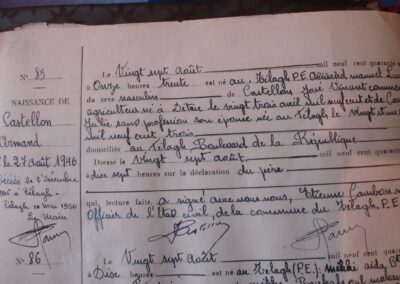 N° 85
NAISSANCE DE
Castellon
Armand
le 27 août 1946
Décédé le 8 Décembre
à Télagh
Télagh 10 mai 1950
Le Maire
N° 86
Le Vingt sept Août mil neuf cent quarante
à Onze heures trente est né au Télagh P.E Armand manuel
du sexe masculin de Castellon José Vincent
agriculteur né à le vingt trois avril mil neuf cent et de
Julie sans profession son épouse née au Télagh le vingt
mil neuf cent trois
domiciliés au Télagh Boulevard de la République
Dressé le vingt sept août mil neuf cent quarante
à dix sept heures sur la déclaration du père
qui, lecture faite, a signé avec nous, Etienne Cambon
Officier de l'Etat civil, de la commune du Télagh. P.E
Le Vingt sept Août mil neuf cent
à Dix heures est né au Télagh (P.E.)